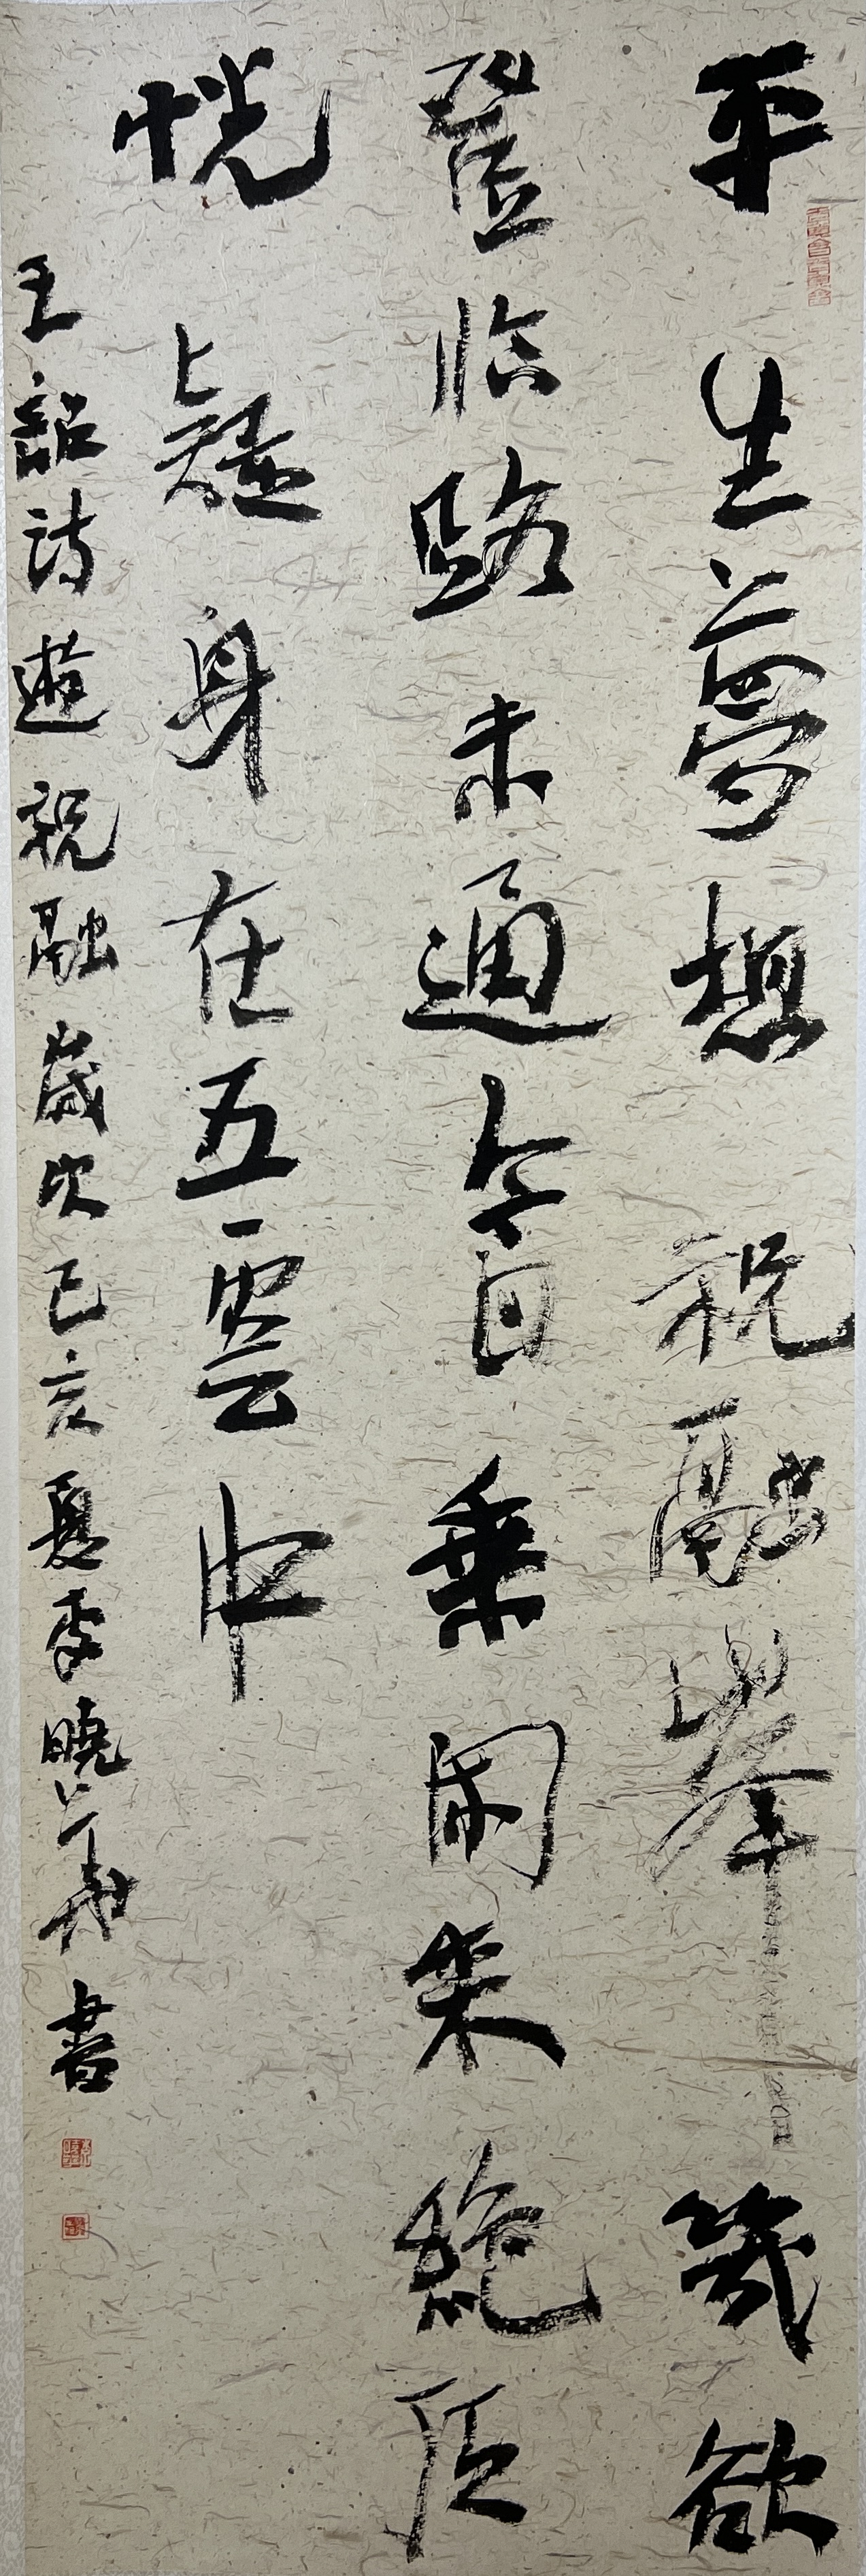 平生夢想祝融峯幾欲
登臨路未通今日乘閑來絶頂
恍疑身在五雲中
王韶詩遊祝融歲次己亥夏李曉書